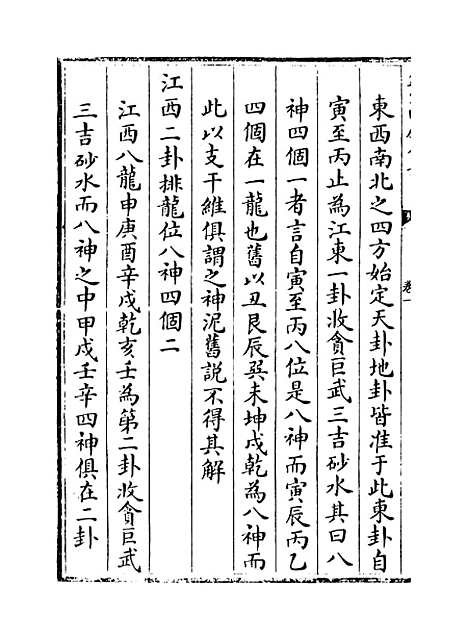 東西南北之四方始定天卦地卦皆准于此東卦自
寅至丙止為江東一卦收貪巨武三吉砂水其曰八
神四個一者言自寅至丙八位是八神而寅辰丙乙
四個在一龍也舊以丑艮辰巽未坤戌乾為八神而
此以支干維俱謂之神泥舊說不得其解
江西二卦排龍位八神四個二
江西八龍申庚酉辛戌乾亥壬為第二卦收貪巨武
三吉砂水而八神之中甲戌壬辛四神俱在二卦